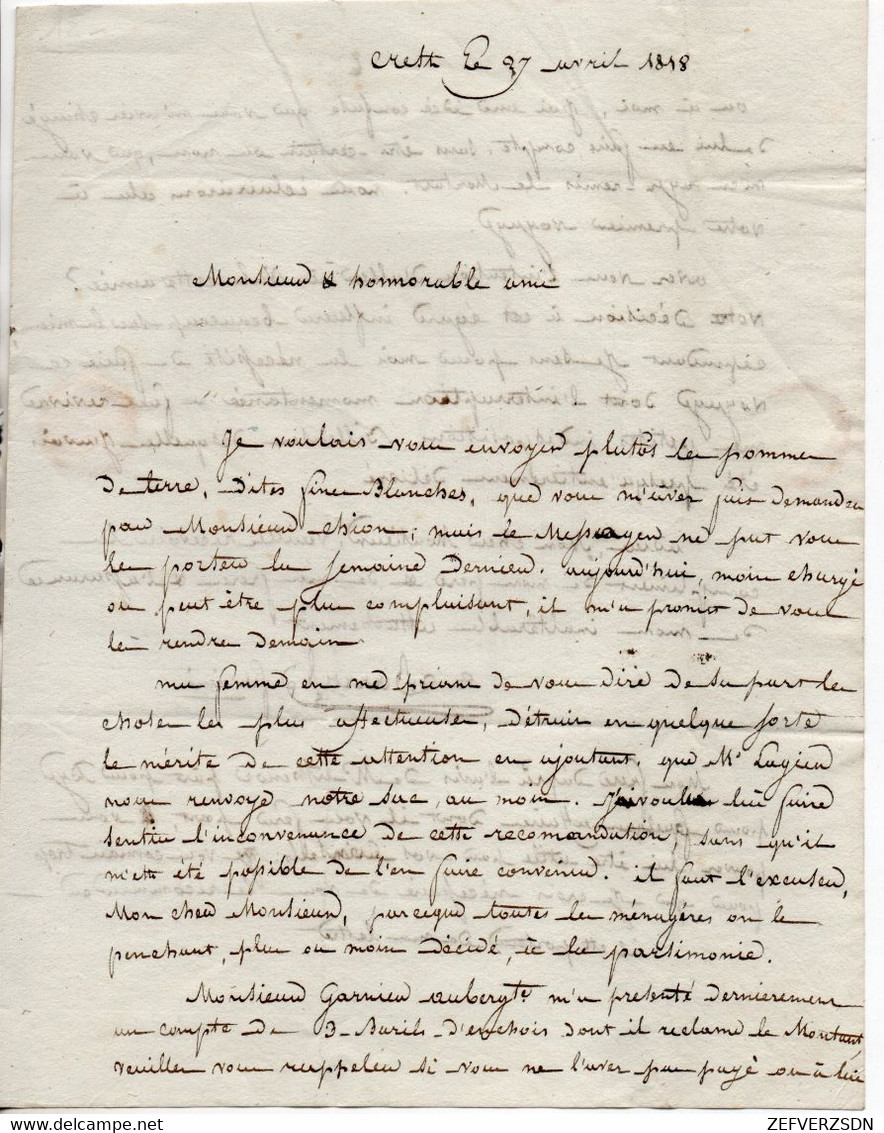 Crest Le 27 avril 1818
Monsieur & honnorable ami
Je voulais vous envoyer plutôt les pommes
De terre, Dites fines Blanches, que vous m'avez fais demander
par Monsieur chion; mais le Messager ne put vous
les porter la semaine Derniere. aujourd'hui, moins chargé
ou peut être plus complaisant, il m'a promis de vous
les rendre Demain.
ma femme en me priant de vous dire de sa part les
choses les plus affectueuses, Détruis en quelque sorte
le mérite de cette attention en ajoutant, que Mr Lagier
nous renvoye notre sac, au moins. J'ai voulu lui faire
sentir l'inconvenance de cette recomandation, sans qu'il
m'ett été possible de l'en faire convenir. il faut l'excuser,
Mon cher Monsieur, parceque toutes les ménagères on le
penchant, plus ou moins Décidé, à la parsimonie.
Monsieur Garnier aubergte m'a presenté dernierement
un compte de 3 Barils d'enchois dont il reclame le Montant,
veuillez vous rappeler si vous ne l'avez pas payé ou à lui
ZEFVERZSDN